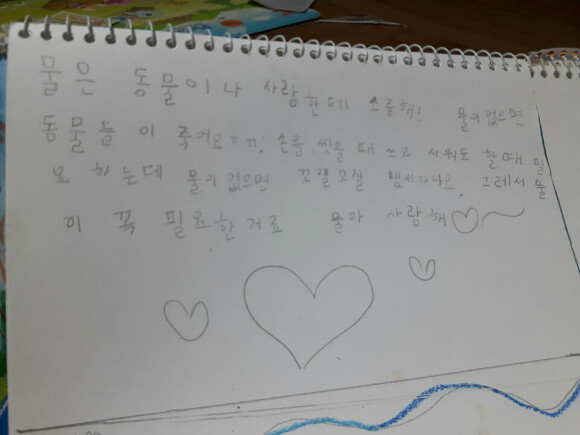 물은 동물이나 사람한테 소중해! 물이 없으면
동물들이 죽어요ㅠㅠ; 손을 씻을 때 쓰고 샤워도 할때 필
요 하는데 물이 없으면 꼬랠꼬랠 냄새가나요. 그레서 물
이 꼭 필요한거죠 물아 사랑해